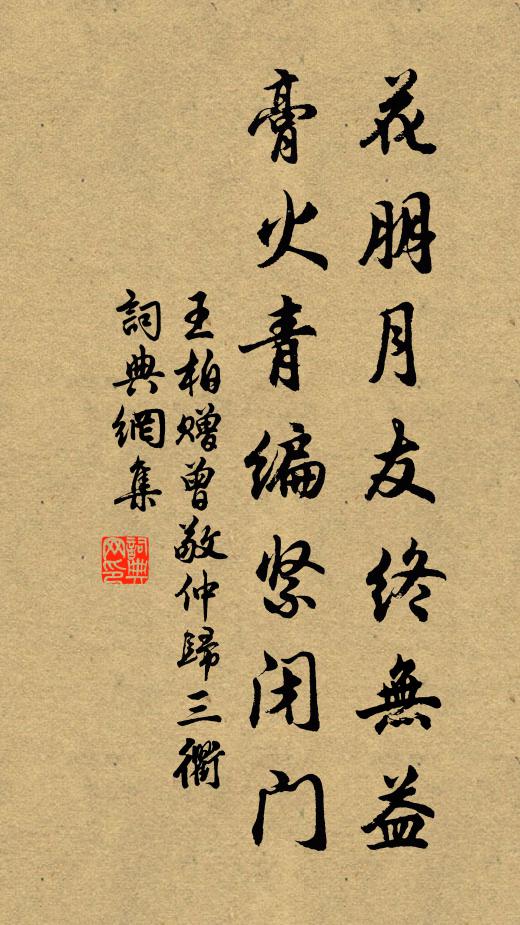 花朋月友終無益
膏火青编紧闭门
王柏赠曾敬仲歸三衢
詞典網集
詞典网印